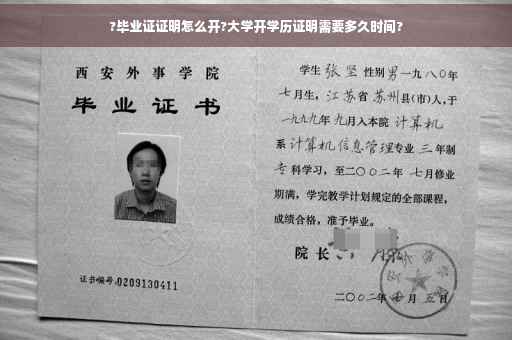 ?毕业证证明怎么开?大学开学历证明需要多久时间?
西安外事学院
毕业证书
证书编号:0209130411
学生 张坚 性别 男 一九八〇年
七月生，江苏省 苏州县(市)人，于
一九九九年 九月入本院 计算机
系 计算机信息管理专业 三 年制
专科学习，至二〇〇二年 七月修业
期满，学完教学计划规定的全部课程，
成绩合格，准予毕业。
院长
二〇〇二年 七月 五日